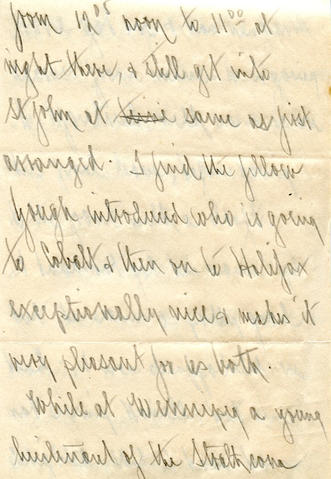 from 12 05 noon to 11 00 at
night there, & still get into
St John at time same as first
arranged. I find the fellow
Gough introduced who is going
to Cobolt & then on to Halifax
exceptionally nice & makes it
very pleasant for us both.
While at Winnipeg a young
lieutenant of the Strathcona